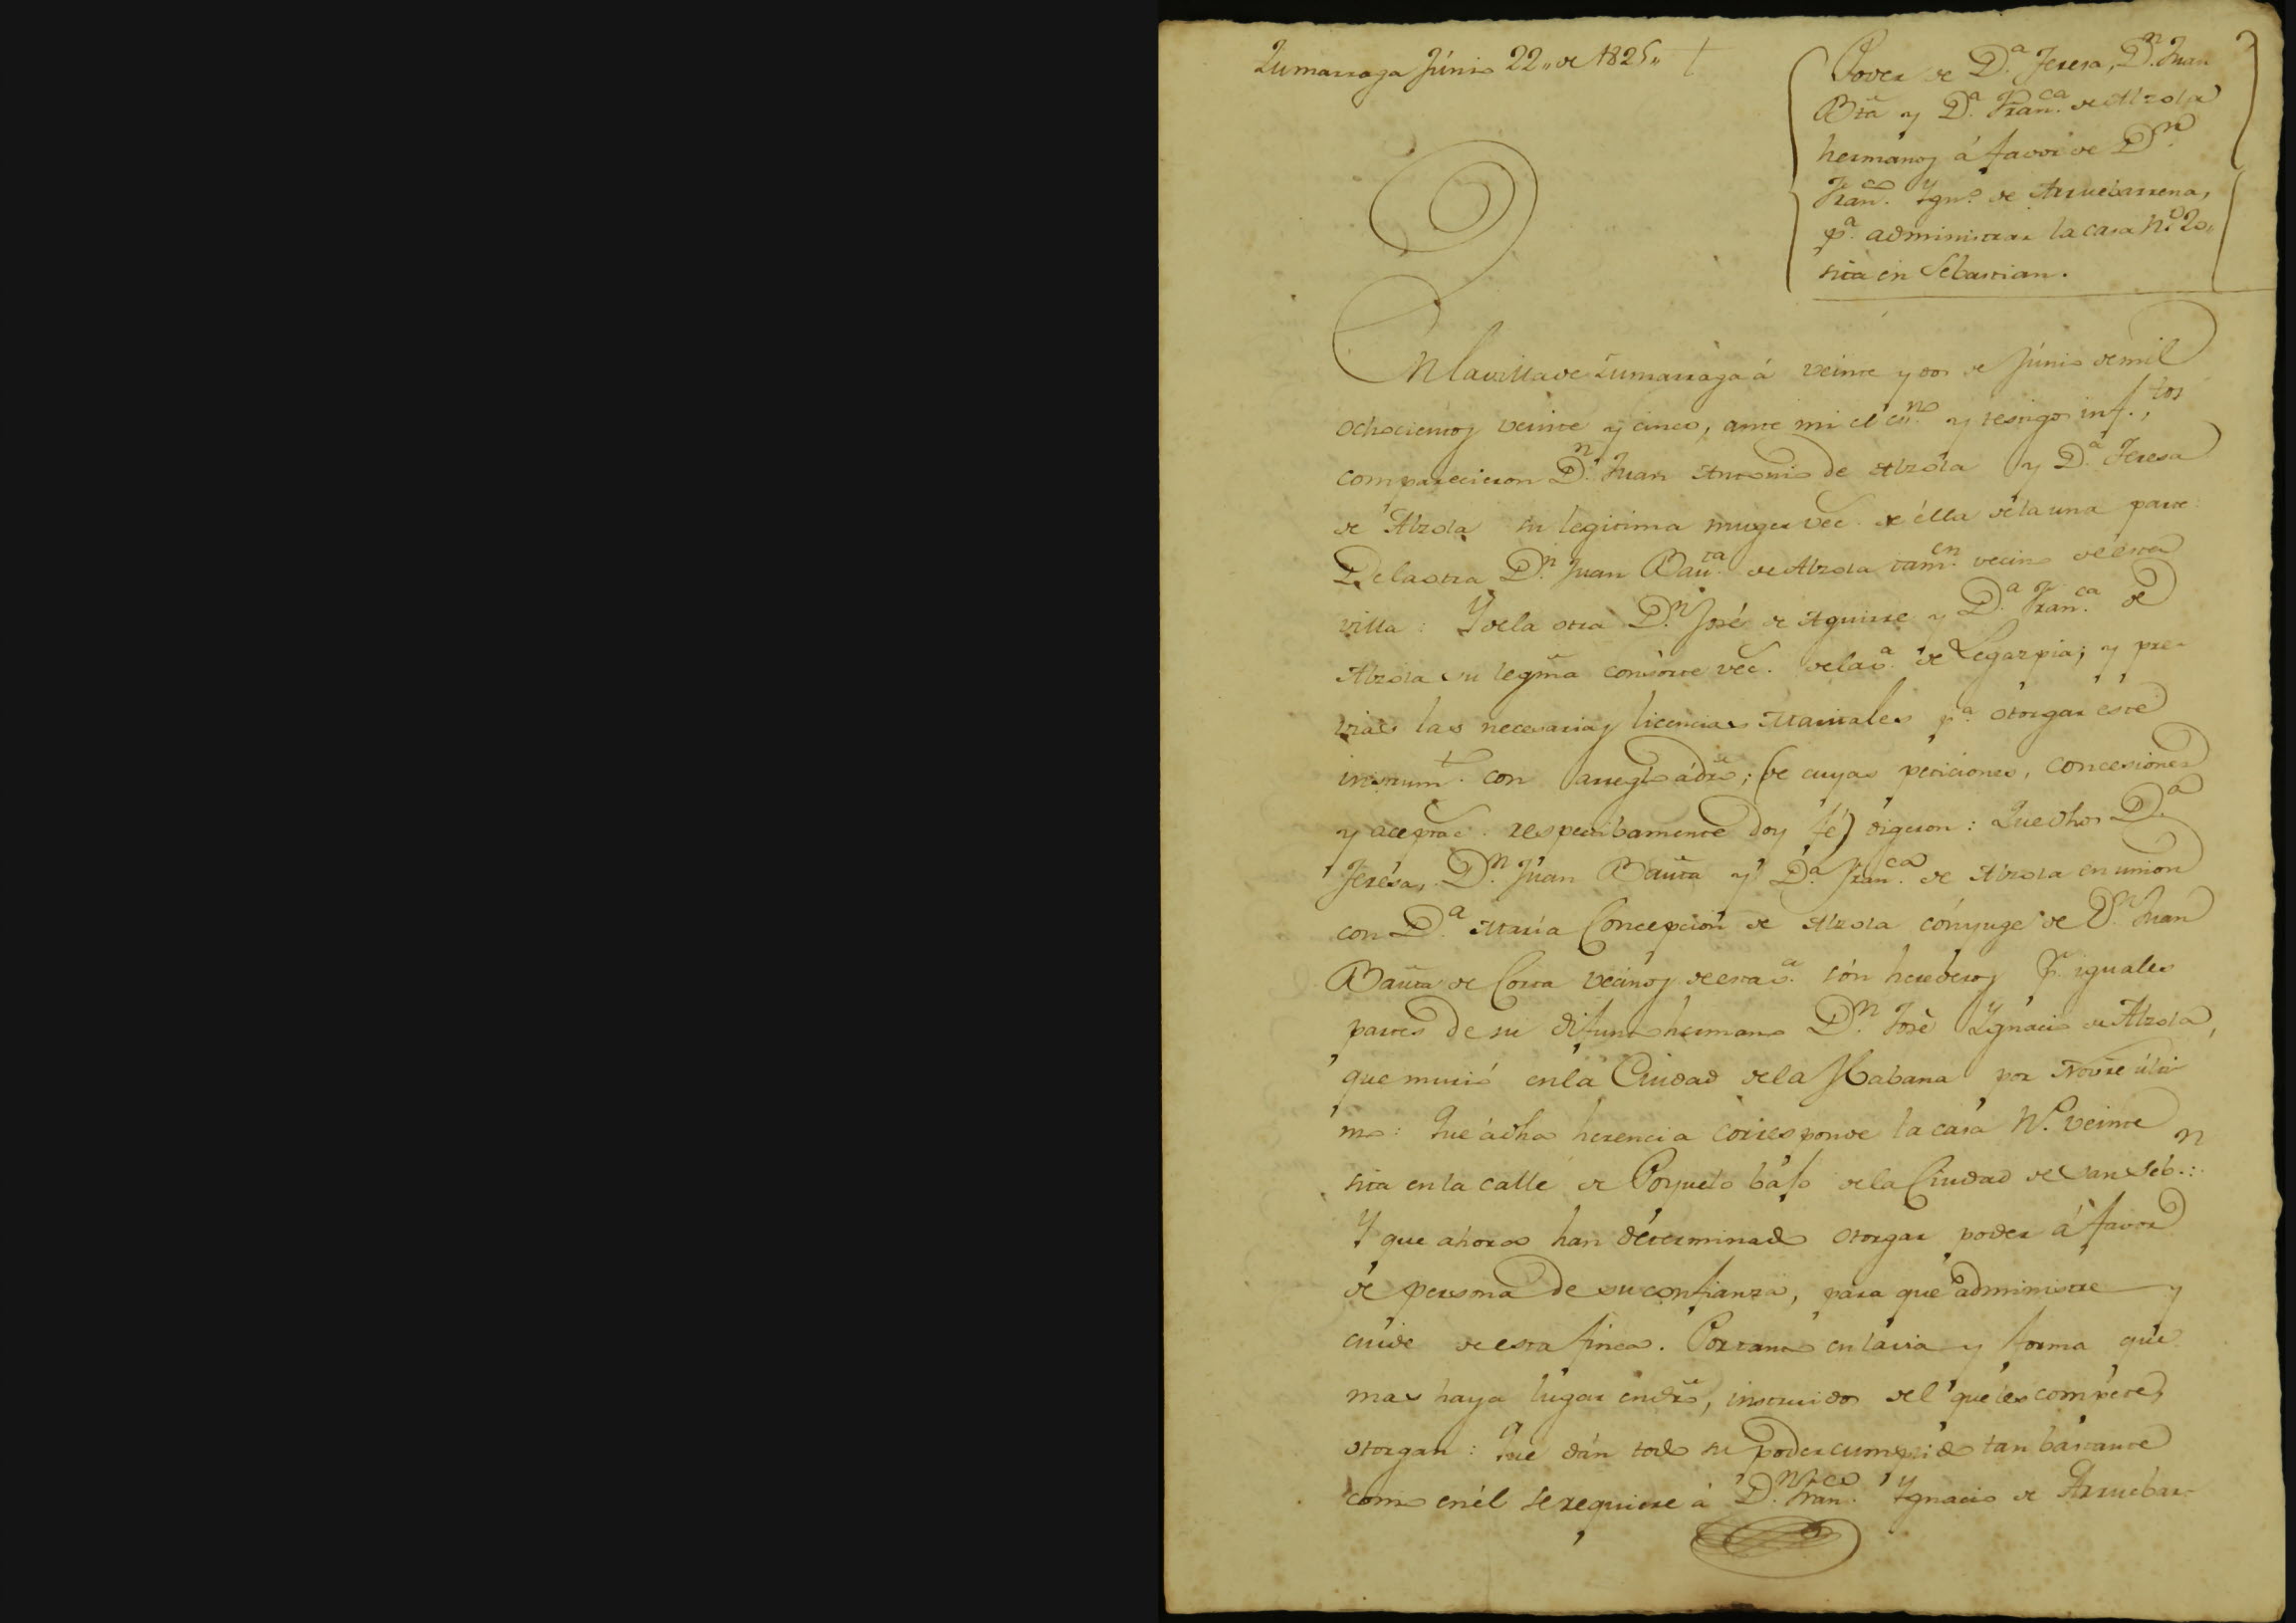 Zumarraga Júnio 22,, de 1825,,
Poder de D.ª Teresa, D.n Juan
Btã y D.ª Fran.ca de Alzola
hermanos á favor de D.n
Fran.co Ygn.o de Arruebarrena,
p.ª administrar la casa N.o 20,,
sita en Sebastian.
En la villa de Zumarraga á veinte y dos de Júnio de mil
ochocientos veinte y cinco, ante mi el es.no y testigos inf.tos,
comparecieron D.n Juan Antonio de Alzola y D.ª Teresa
de Alzola su legitima muger vec. de élla de la una parte:
De la otra D.n Juan Bau.ta de Alzola tam.en vecino de esta
villa: Y de la otra D.n José de Aguirre y D.ª Fran.ca de
Alzola su legm̃a consorte vec̃. de la de Legazpia; y pre-
vias las necesarias licencias Maritales p.ª otorgar éste
instrum.t con arreglo á dr̃o; (de cuyas peticiones, concesiones
y aceptac. respectibamente doy fé) digeron: Que dhos D.ª
Teresa, D.n Juan Bauta y D.ª Fran.ca de Alzola en unión
con D.ª María Concepción de Alzola cónyuge de D.n Juan
Bauta de Corta vecinos de esta v.ª són herederos p.r iguales
partes de su difunto hermano D.n José Ygnacio de Alzola,
que murió en la Ciudad de la Habana por Novre últi-
mo: Que á dha herencia corresponde la casa N.o veinte
sita en la calle de Poyuelo bajo de la Ciudad de San Seb.n:
Y que ahora han determinado otorgar poder á favor
de persona de su confianza, para que administre y
cuide de esta finca. Por tanto en la via y forma que
mas haya lugar en dr̃o, instruidos del que les compete,
otorgan: Que dán todo su poder cumplido tan bastante
como en él se requiere á D.n Fran.co Ygnacio de Arruebar-